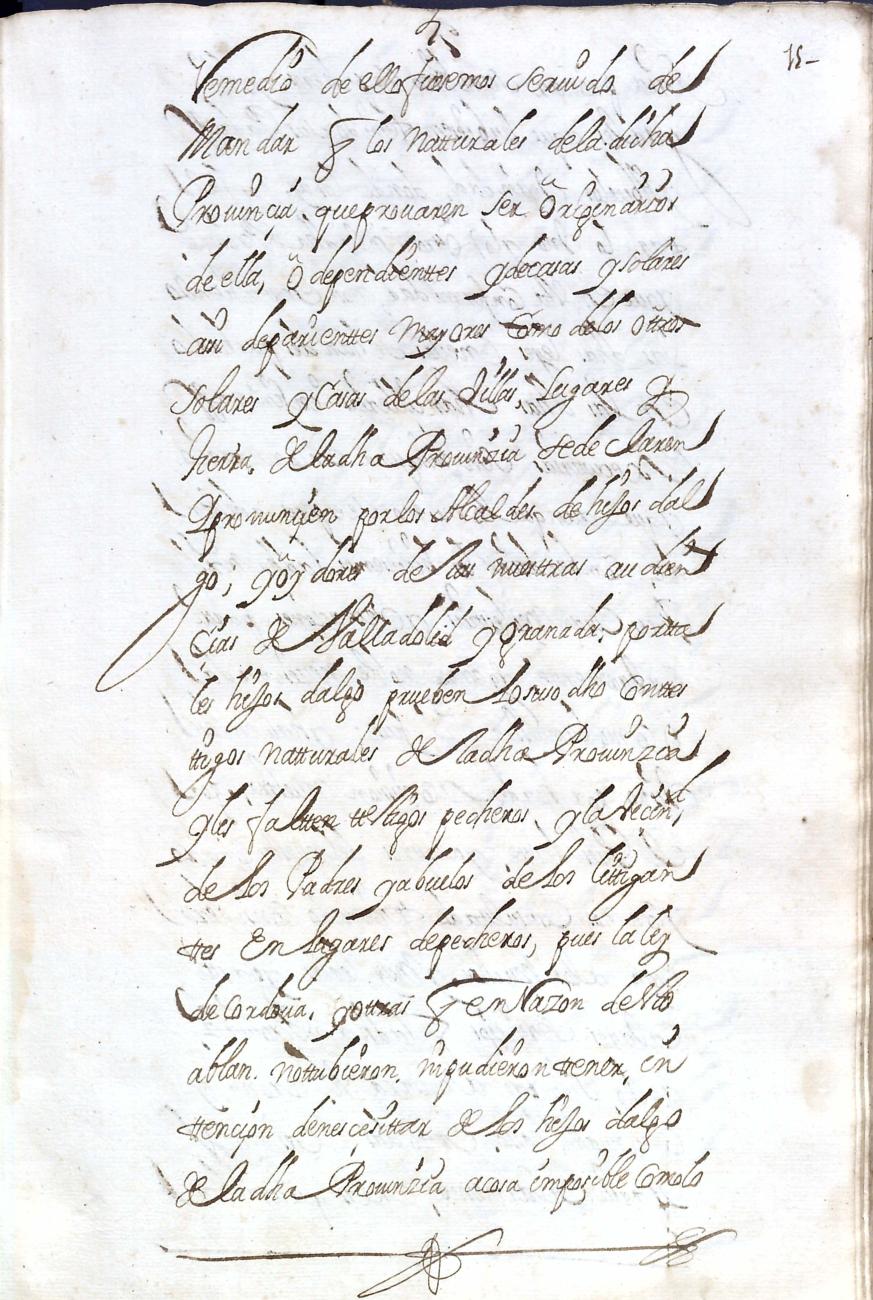 15-
Remedio de ello fuesemos seruido de
Mandar q los Natturales de la dicha
Prouincia, que prouaren ser Originarios
de ella, ô dependienttes y de casas y solares
asi de parienttes mayores Como de los ottros
solares y Casas de las Villas, Lugares y
tierra, de la dha Prouinzia se de Claren
y pronunçien por los Alcaldes de hijos dal
go, y oydores de las nuesttras audien
çias de Valladolid y Granada, por tta
les hijos dalgo prueben lo suso dho Conttes
ttigos natturales de la dha Prouinzia
y les faltten ttesttigos pecheros, y la Veçind
de los Padres y abuelos de los littigan
ttes En lugares de pecheros, pues la ley
de Cordoua, y ottras q en Razon de ello
ablan. no ttubieron, ni pudieron ttener, in
ttençion de nesçesittar a los hijos dalgo
de la dha Prouinzia a cosa imposible Como lo